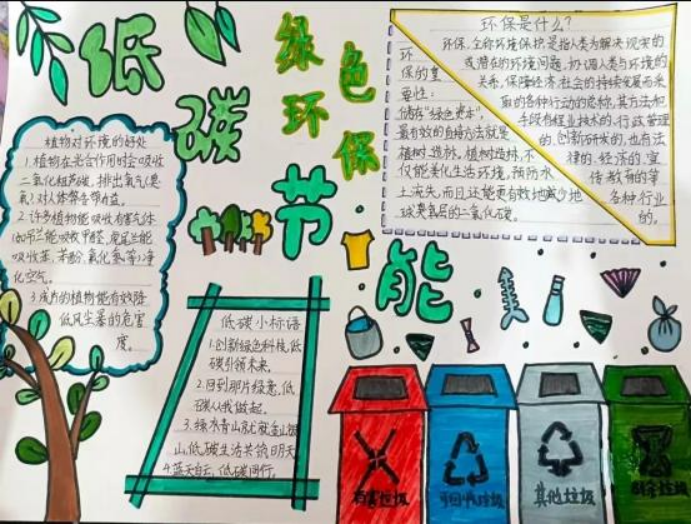 低碳
节能
绿色
环保
植物对环境的好处
1.植物在光合作用时会吸收
二氧化碳,排出氧气(臭
氧)对人体
2.许多植物能吸收有害气体
(如吊兰能吸收甲醛,虎尾兰能
吸收苯、苯酚、氟化氢等)净
化空气。
3.成片的植物能有效降
低风尘暴的危害
度。
环保是什么?
环保,全称环境保护,是指人类为解决现实的
或潜在的环境问题,协调人类与环境的
关系,保障经济社会的持续发展而采
取的各种行动的总称,其方法和
手段有工程技术的、行政管理
的、创新研发的,也有法
律的、经济的、宣
传教育的等
各种行业
的。
环
保的重
要性:
储存"绿色资本",
最有效的直接方法就是
植树造林。植树造林,不
仅能美化生活环境,预防水
土流失,而且还能更有效地减少地
球臭氧层的二氧化碳。
低碳小标语
1.创新绿色科技,低
碳引领未来。
2.回到那片绿意,低
碳从我做起。
3.绿水青山就是金山银
山,低碳生活共筑明天
4.蓝天白云,低碳同行。
有害垃圾
可回收垃圾
其他垃圾
厨余垃圾